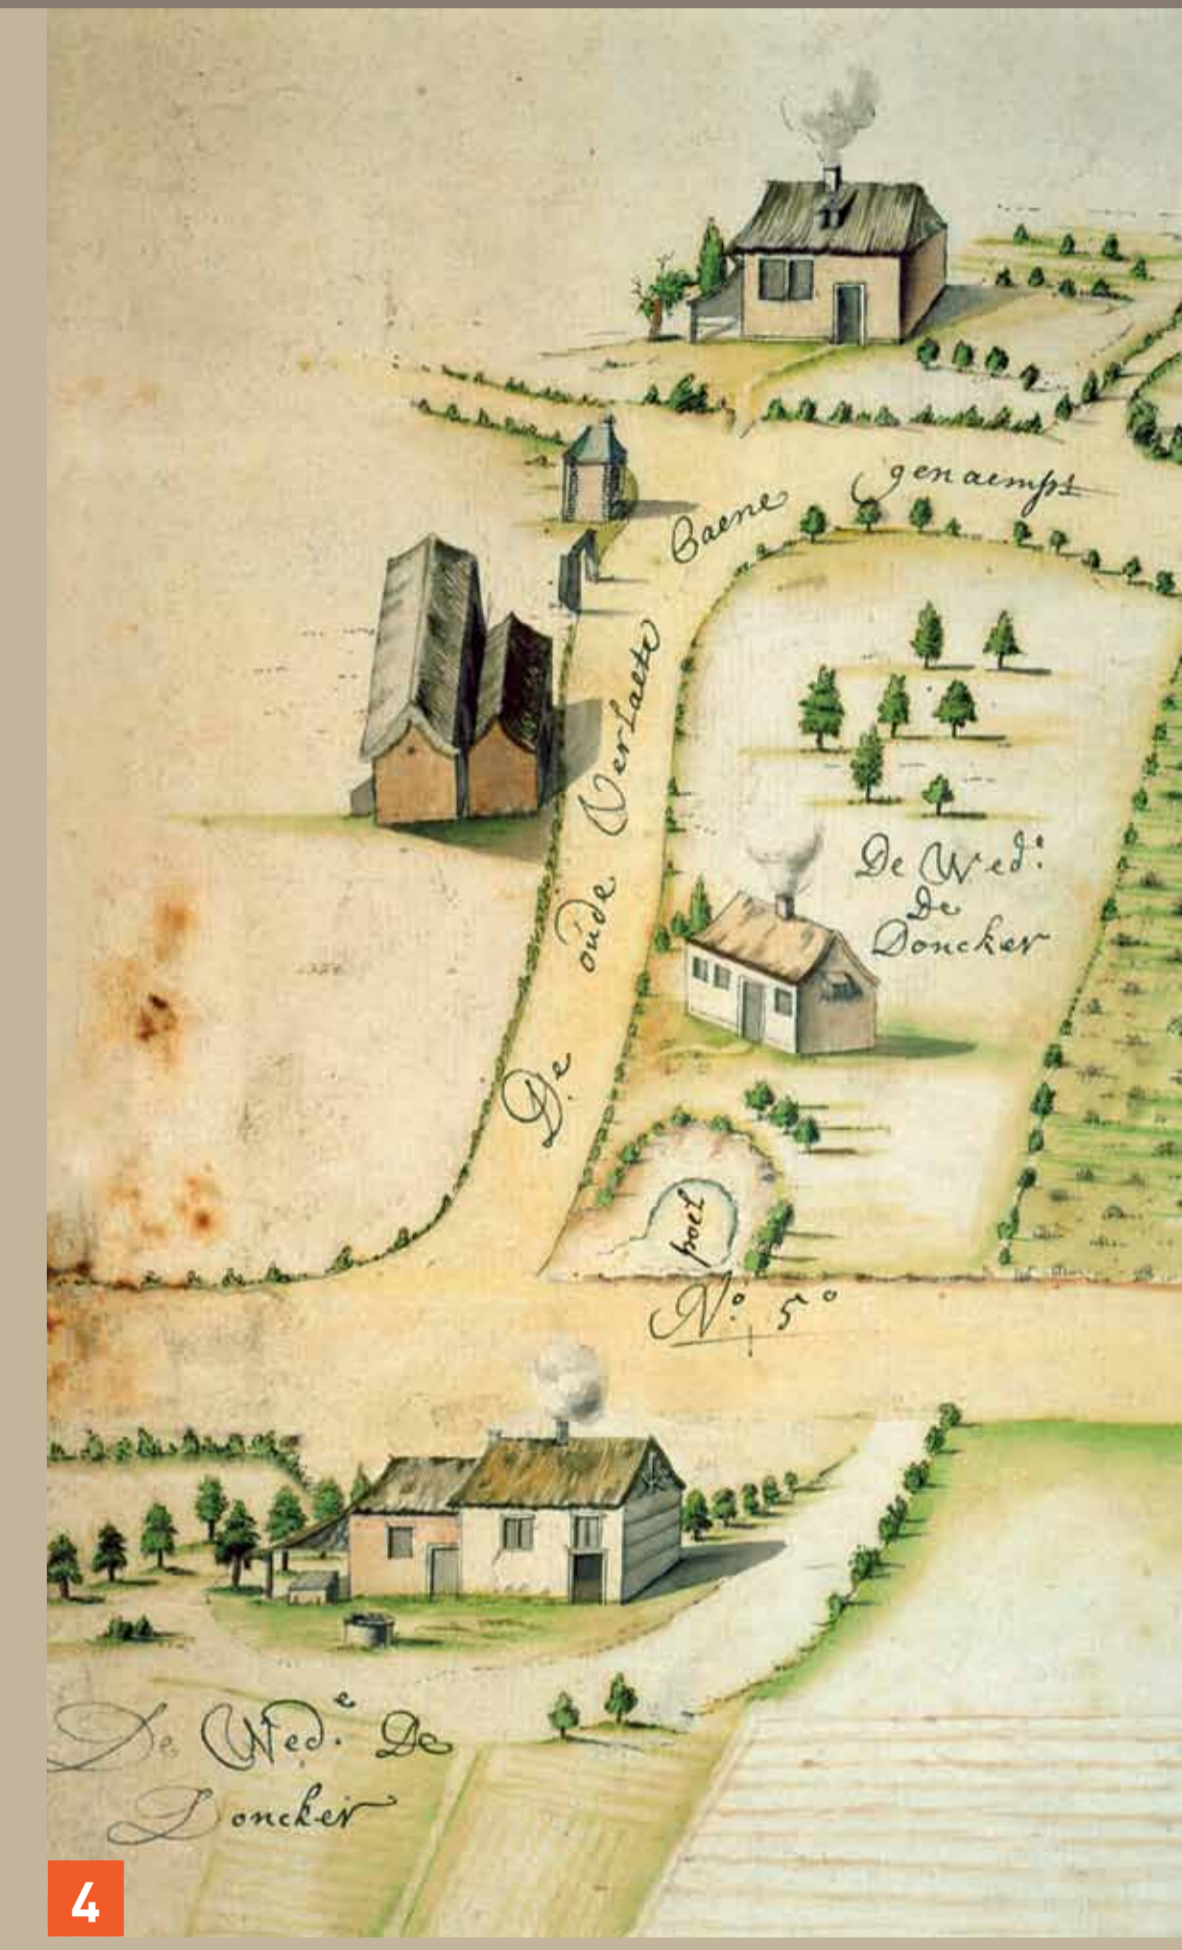 De oude Verlaete Baene genaempt
De Wed:
De
Doncker
poel
No. 5o
De Wed:e De
Doncker
4